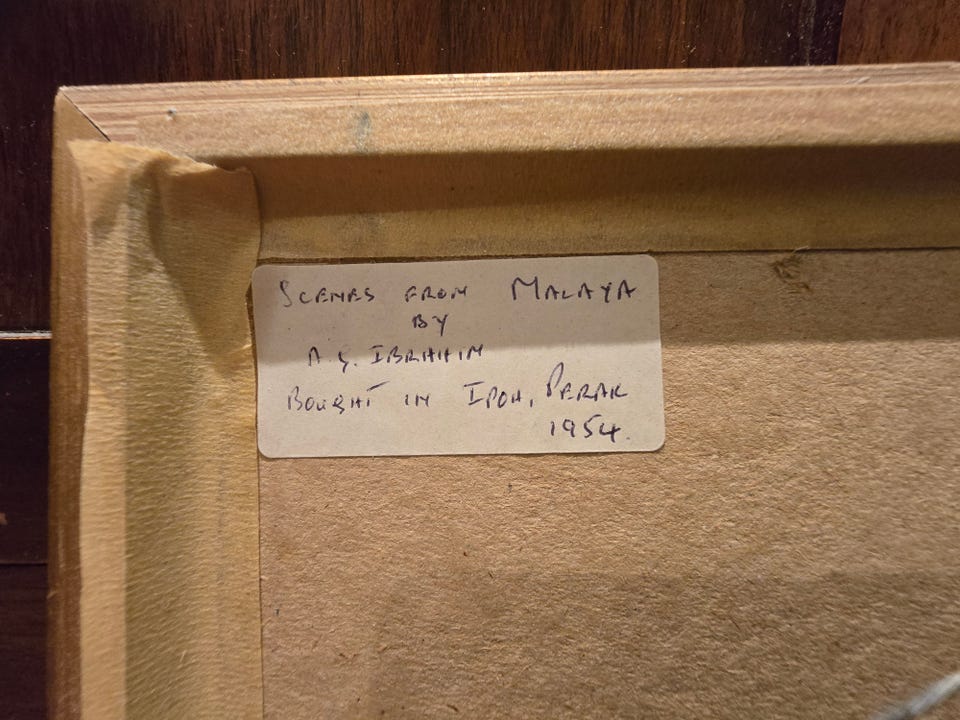 SCENES FROM MALAYA
BY
A. S. IBRAHIM
BOUGHT IN IPOH, PERAK
1954.